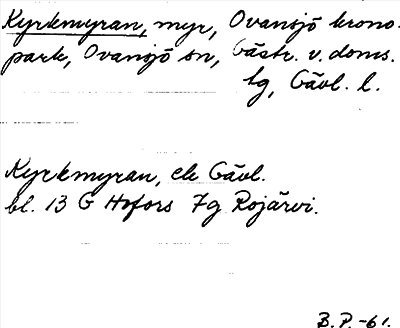 Kyrkmyran, myr, Ovansjö krono-
park, Ovansjö sn, Gästr. v. doms.
tg, Gävl. l.
Kyrkmyran, ek Gävl.
bl. 13 G Hofors 7g Rojärvi.
B.P.-61.